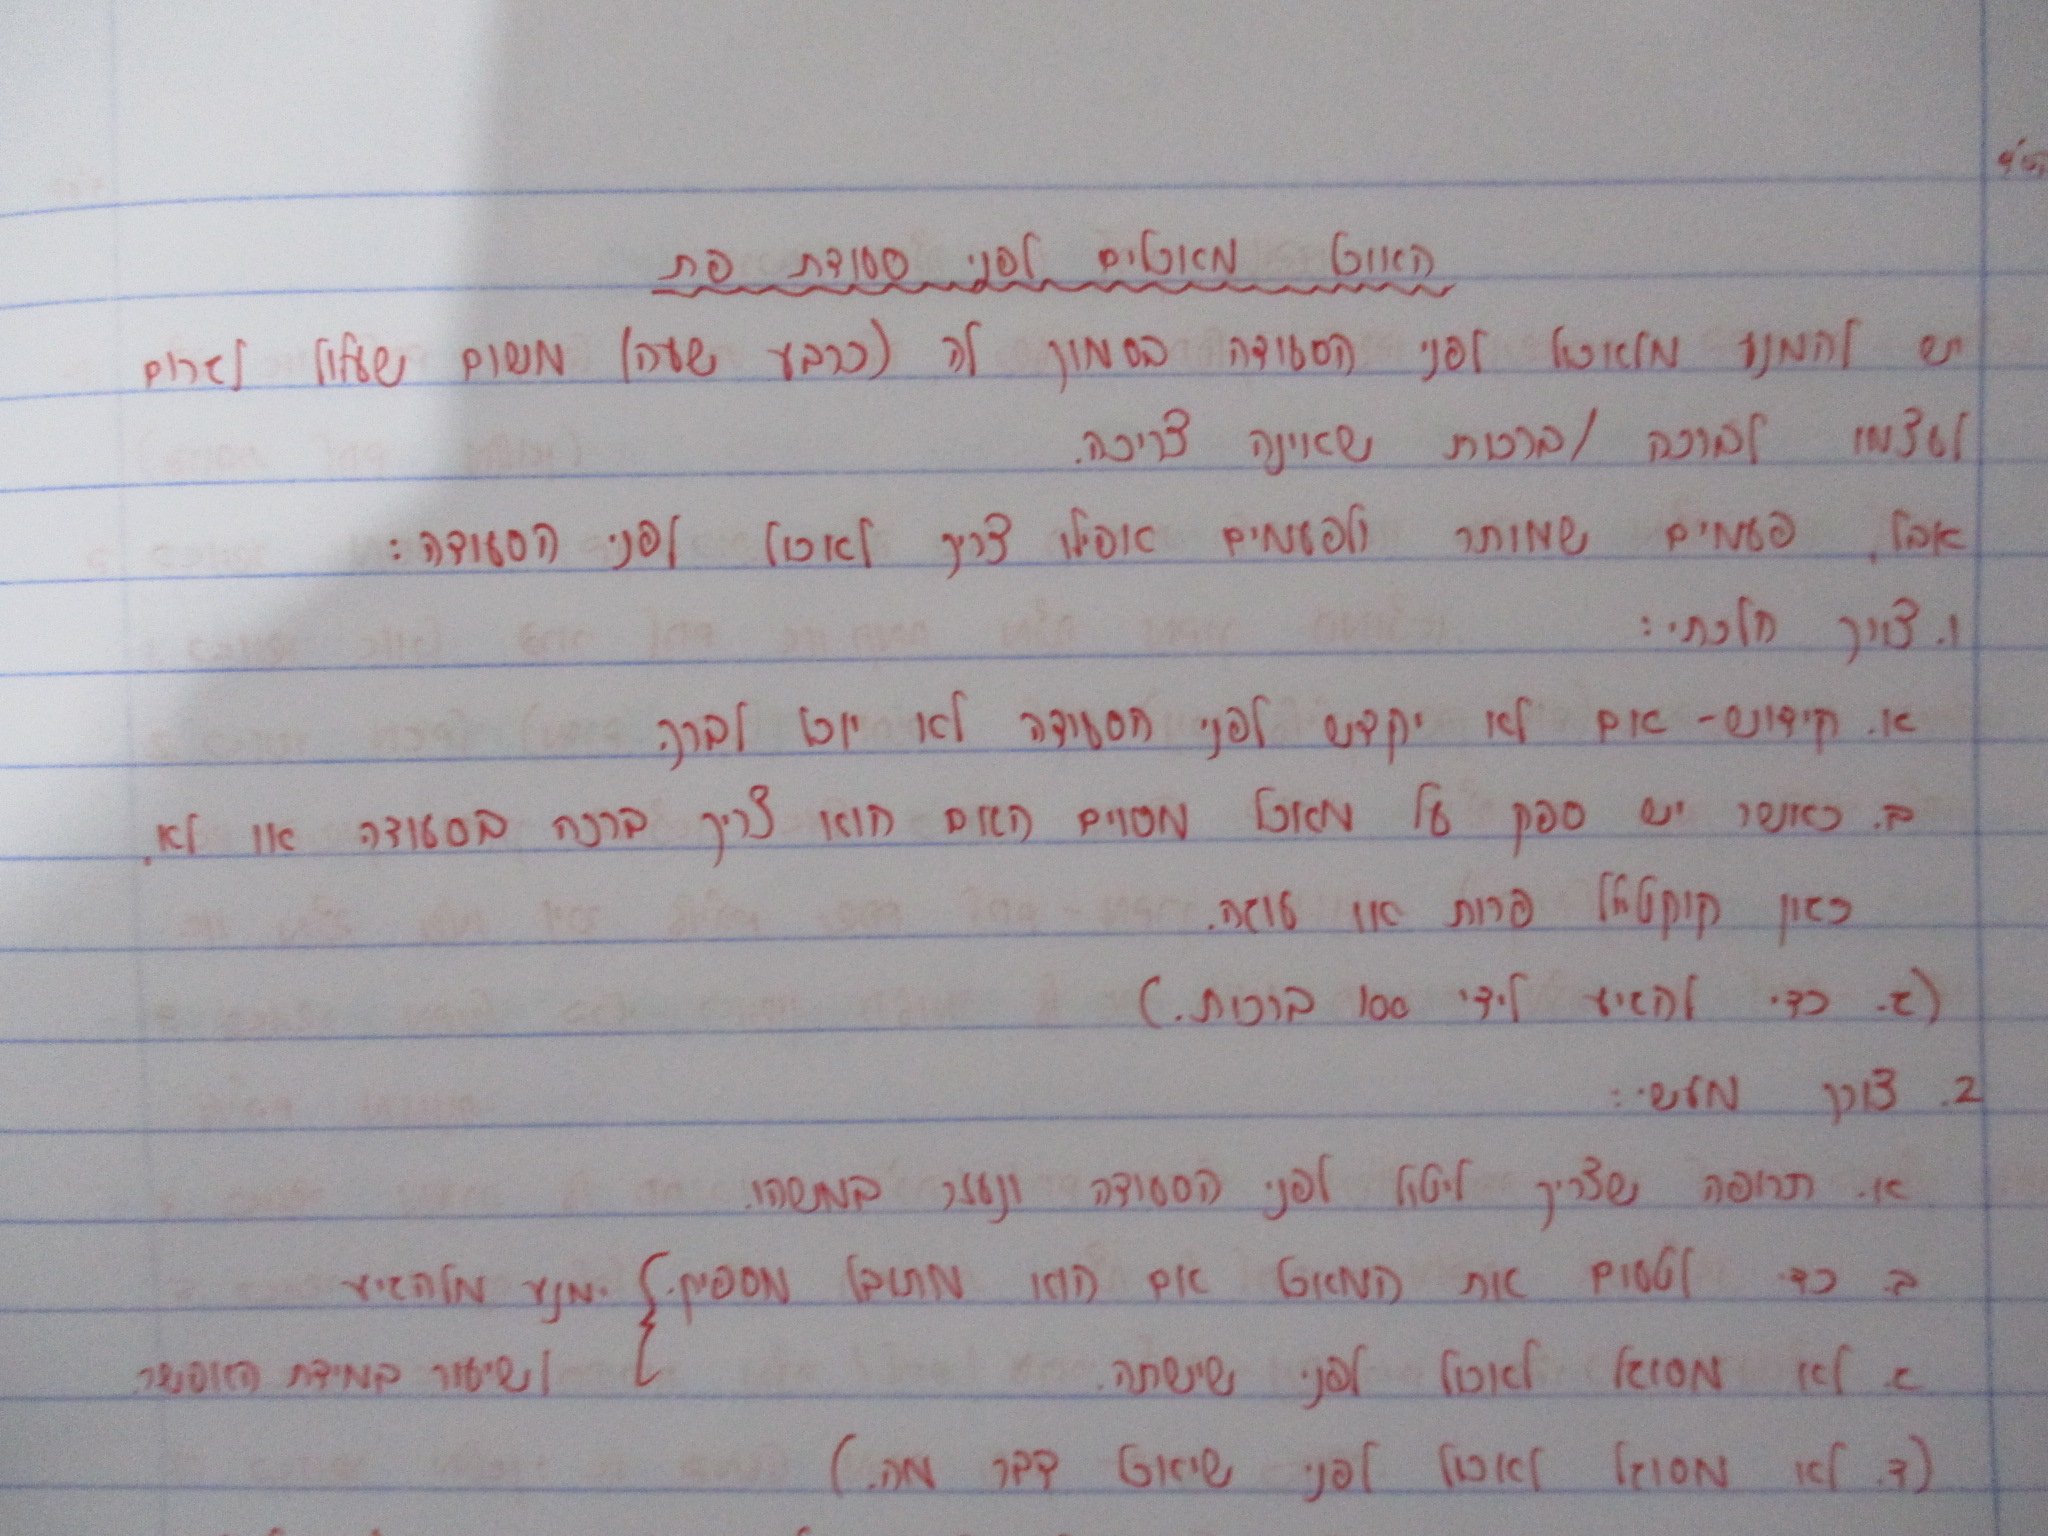 האוכל מאכלים לפני סעודת פת
יש להמנע מלאכול לפני הסעודה בסמוך לה (כרבע שעה) משום שעלול לגרום
לעצמו לברכה /ברכות שאינה צריכה.
אבל, פעמים שמותר ולפעמים אפילו צריך לאכול לפני הסעודה:
1. צורך הלכתי:
א. קידוש- אם לא יקדש לפני הסעודה לא יוכל לברך
ב. כאשר יש ספק על מאכל מסוים האם הוא צריך ברכה בסעודה או לא.
כגון קוקטייל פרות או עוגה.
(ג. כדי להגיע לידי 100 ברכות.)
2. צורך מעשי:
א. תרופה שצריך ליטול לפני הסעודה ונעזר במשהו.
ב. כדי לטעום את המאכל אם הוא מתובל מספיק. } ימנע מלהגיע
ג. לא מסוגל לאכול לפני שישתה. לשיעור במידת האפשר
(ד. לא מסוגל לאכול לפני שיאכל דבר מה.)